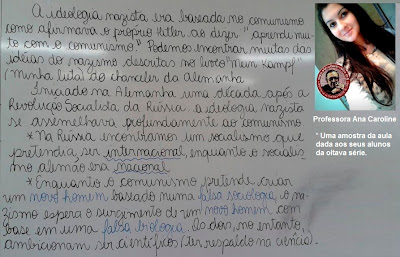 A ideologia nazista era baseada no comunismo
como afirmava o próprio Hitler ao dizer "aprendi mui-
to com o comunismo." Podemos encontrar muitas das
idéias do nazismo descritas no livro "Mein Kampf"
(Minha luta) do chanceler da Alemanha
Iniciado na Alemanha uma década após a
Revolução Socialista da Rússia a ideologia nazista
se assemelhava profundamente ao comunismo.
* Na Rússia encontramos um socialismo que
pretendia ser internacional, enquanto o socialis-
mo alemão era nacional
* Enquanto o comunismo pretende criar
um novo homem baseado numa falsa sociologia, o na-
zismo espera o surgimento de um novo homem com
base em uma falsa biologia. Os dois, no entanto,
ambicionam ser científicos (ter respaldo na ciência).
Professora Ana Caroline
" Uma amostra da aula
dada aos seus alunos
da oitava série.